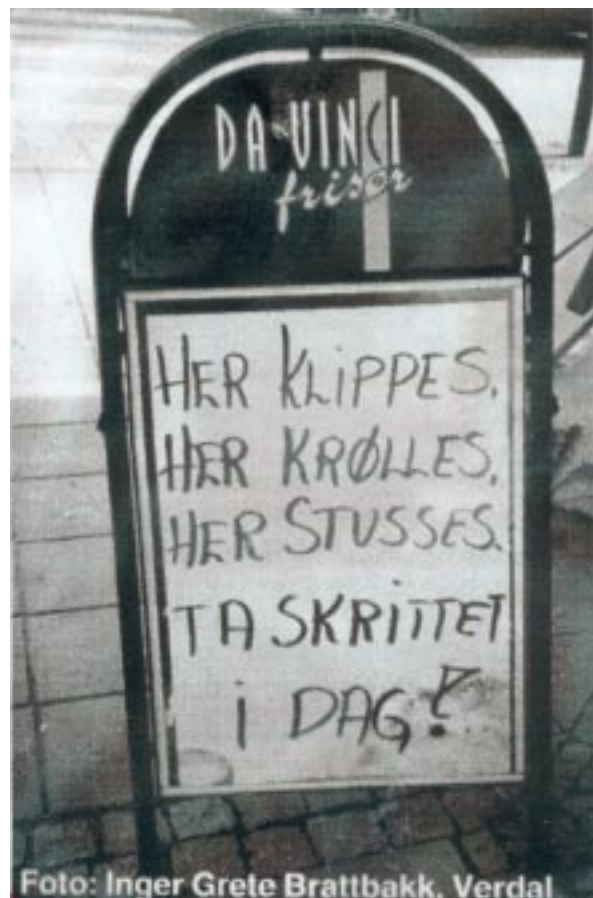 DA VINCI
frisør
HER KLIPPES.
HER KRØLLES.
HER STUSSES.
TA SKRITTET
i DAG!
Foto: Inger Grete Brattbakk, Verdal